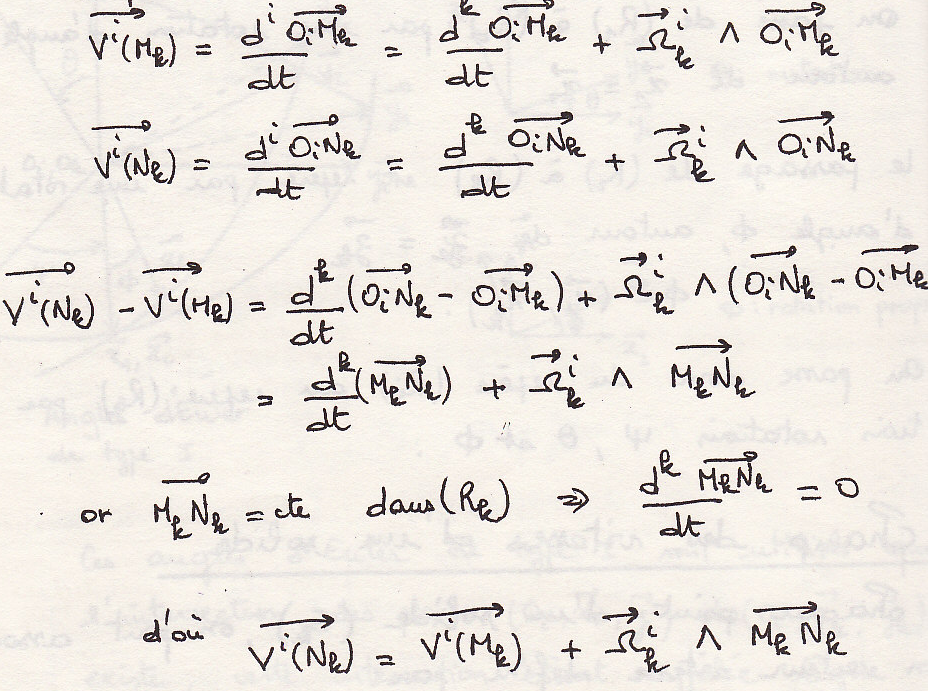 $\overrightarrow{V^i(M_k)} = \frac{d^i \overrightarrow{O_iM_k}}{dt} = \frac{d^k \overrightarrow{O_iM_k}}{dt} + \overrightarrow{\Omega}_k^i \wedge \overrightarrow{O_iM_k}$
$\overrightarrow{V^i(N_k)} = \frac{d^i \overrightarrow{O_iN_k}}{dt} = \frac{d^k \overrightarrow{O_iN_k}}{dt} + \overrightarrow{\Omega}_k^i \wedge \overrightarrow{O_iN_k}$
$\overrightarrow{V^i(N_k)} - \overrightarrow{V^i(M_k)} = \frac{d^k}{dt}(\overrightarrow{O_iN_k} - \overrightarrow{O_iM_k}) + \overrightarrow{\Omega}_k^i \wedge (\overrightarrow{O_iN_k} - \overrightarrow{O_iM_k}$
$= \frac{d^k}{dt}(\overrightarrow{M_kN_k}) + \overrightarrow{\Omega}_k^i \wedge \overrightarrow{M_kN_k}$
or $\overrightarrow{M_kN_k}$ = cte dans $(R_k)$ $\Rightarrow \frac{d^k \overrightarrow{M_kN_k}}{dt} = 0$
d'où $\overrightarrow{V^i(N_k)} = \overrightarrow{V^i(M_k)} + \overrightarrow{\Omega}_k^i \wedge \overrightarrow{M_kN_k}$